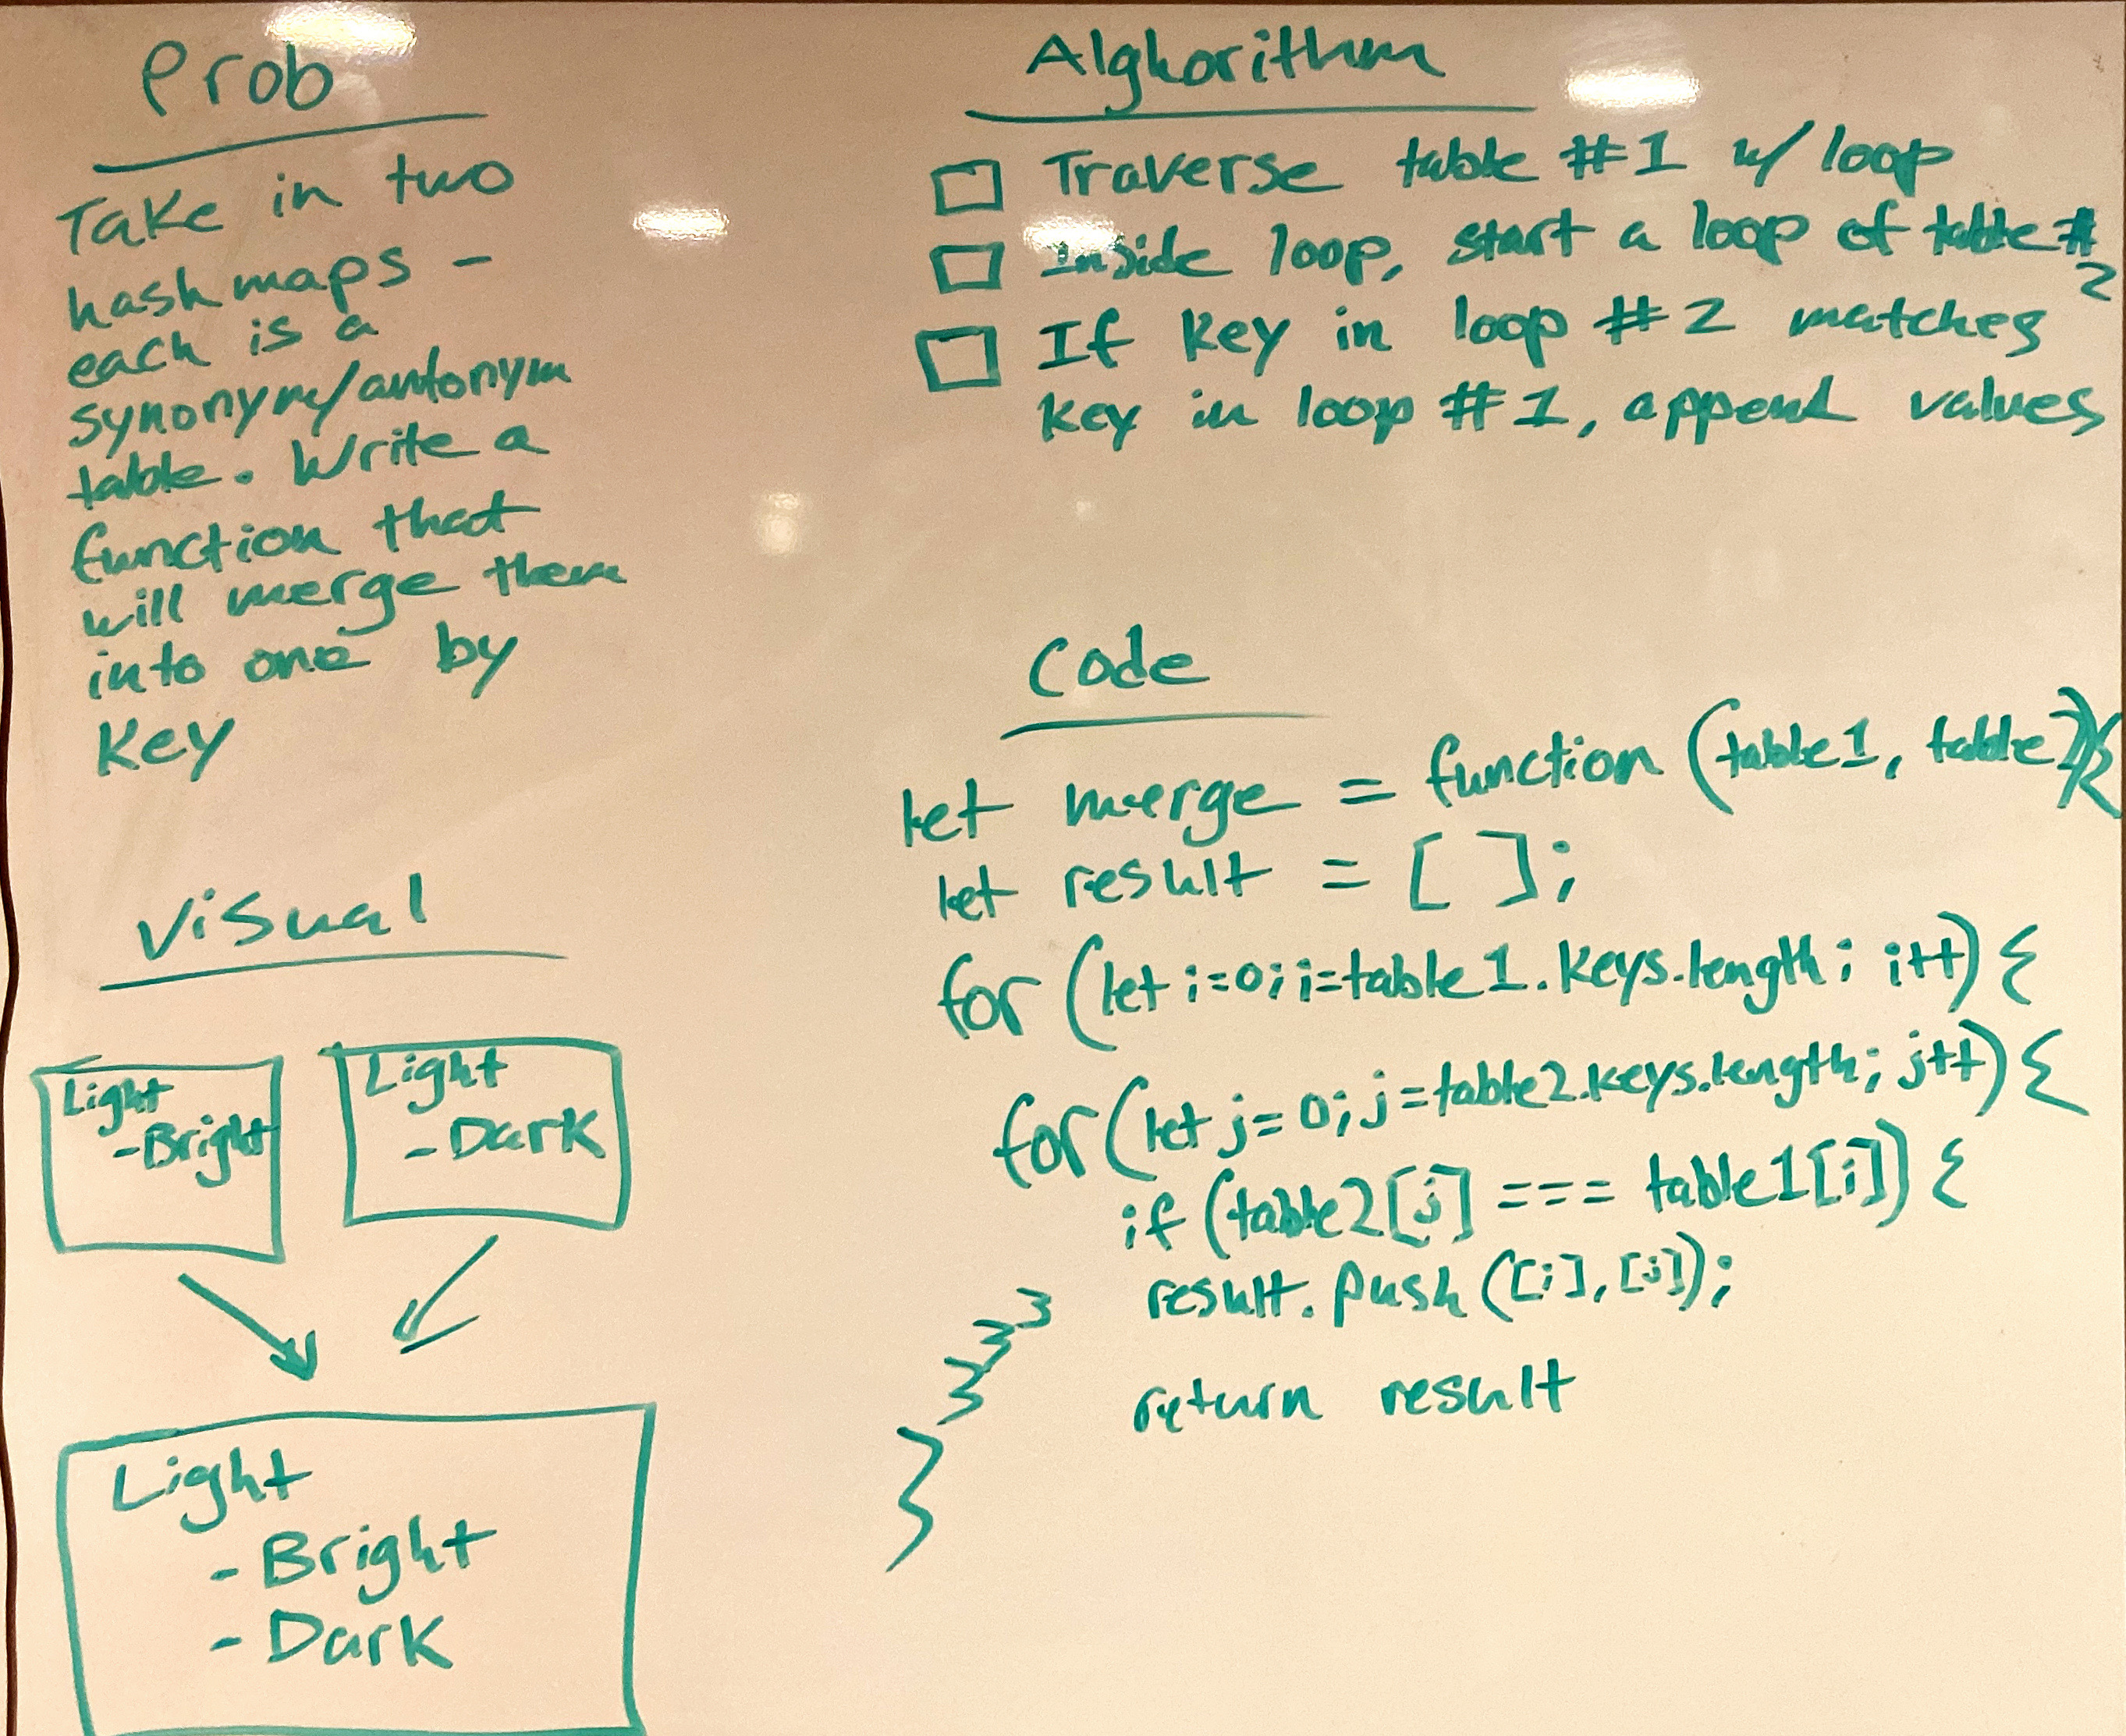 Prob
Take in two
hashmaps -
each is a
synonym/antonym
table. Write a
function that
will merge them
into one by
Key
Visual
Light
-Bright
Light
-Dark
Light
-Bright
-Dark
Alghorithm
Traverse table #1 w/ loop
Inside loop, start a loop of table #
2
If Key in loop #2 matches
Key in loop #1, append values
Code
let merge = function (table1, table2){
let result = [ ];
for (let i=0; i=table1.Keys.length; i++) {
for (let j=0; j=table2.keys.length; j++) {
if (table2[j] === table1[i]) {
result.push([i],[j]);
}
}
}
return result
}